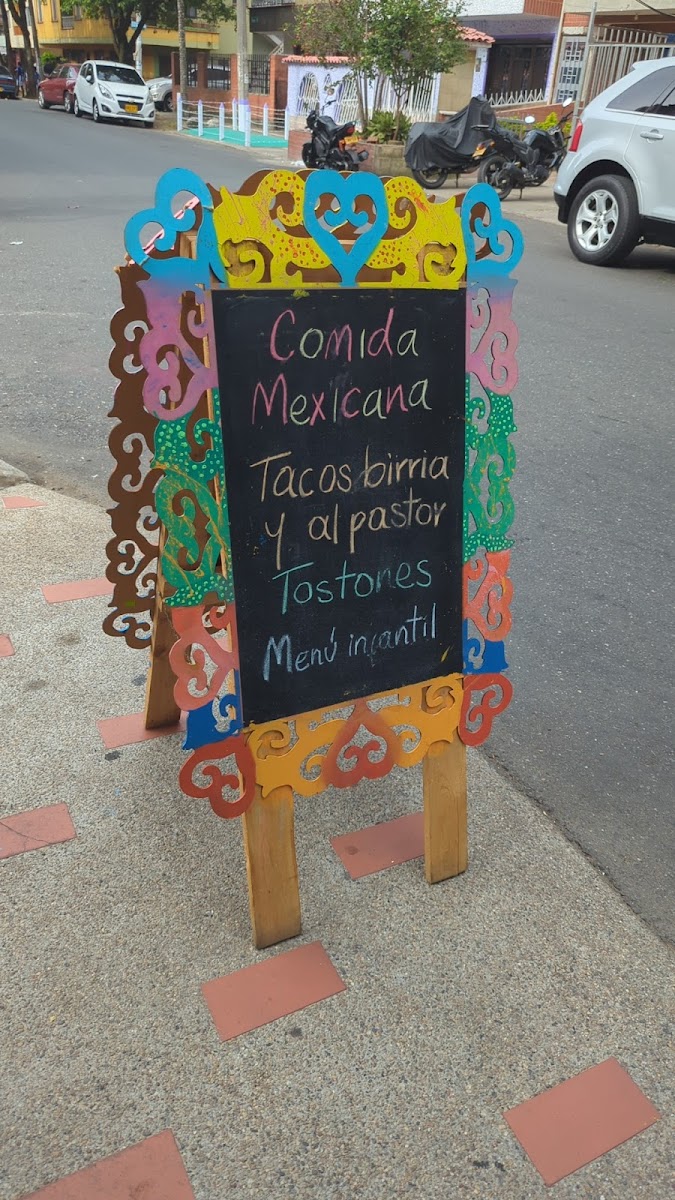 Comida
Mexicana
Tacos birria
y al pastor
Tostones
Menú infantil